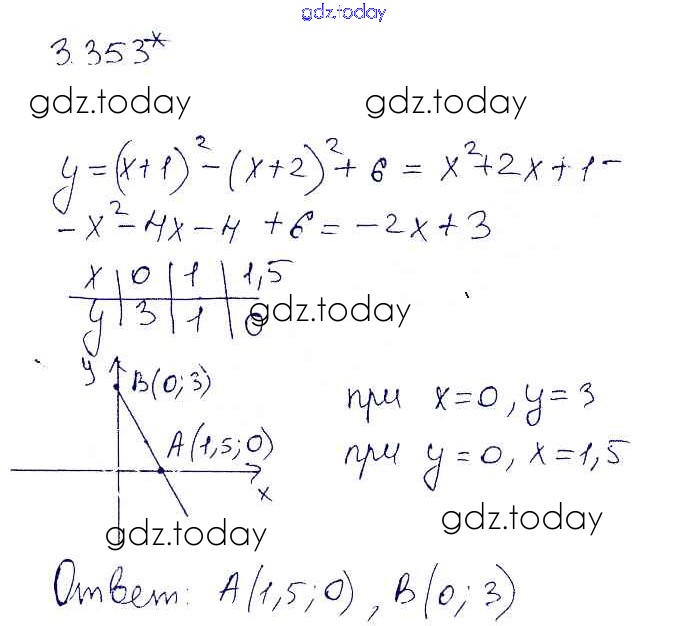 gdz.today
3.353*
gdz.today gdz.today
y=(x+1)²-(x+2)²+6=x²+2x+1-
-x²-4x-4+6=-2x+3
x | 0 | 1 | 1,5
y | 3 | 1 | 0
gdz.today
y B(0;3)
при x=0, y=3
A(1,5;0)
при y=0, x=1,5
x
gdz.today
gdz.today
Ответ: A(1,5;0), B(0;3)